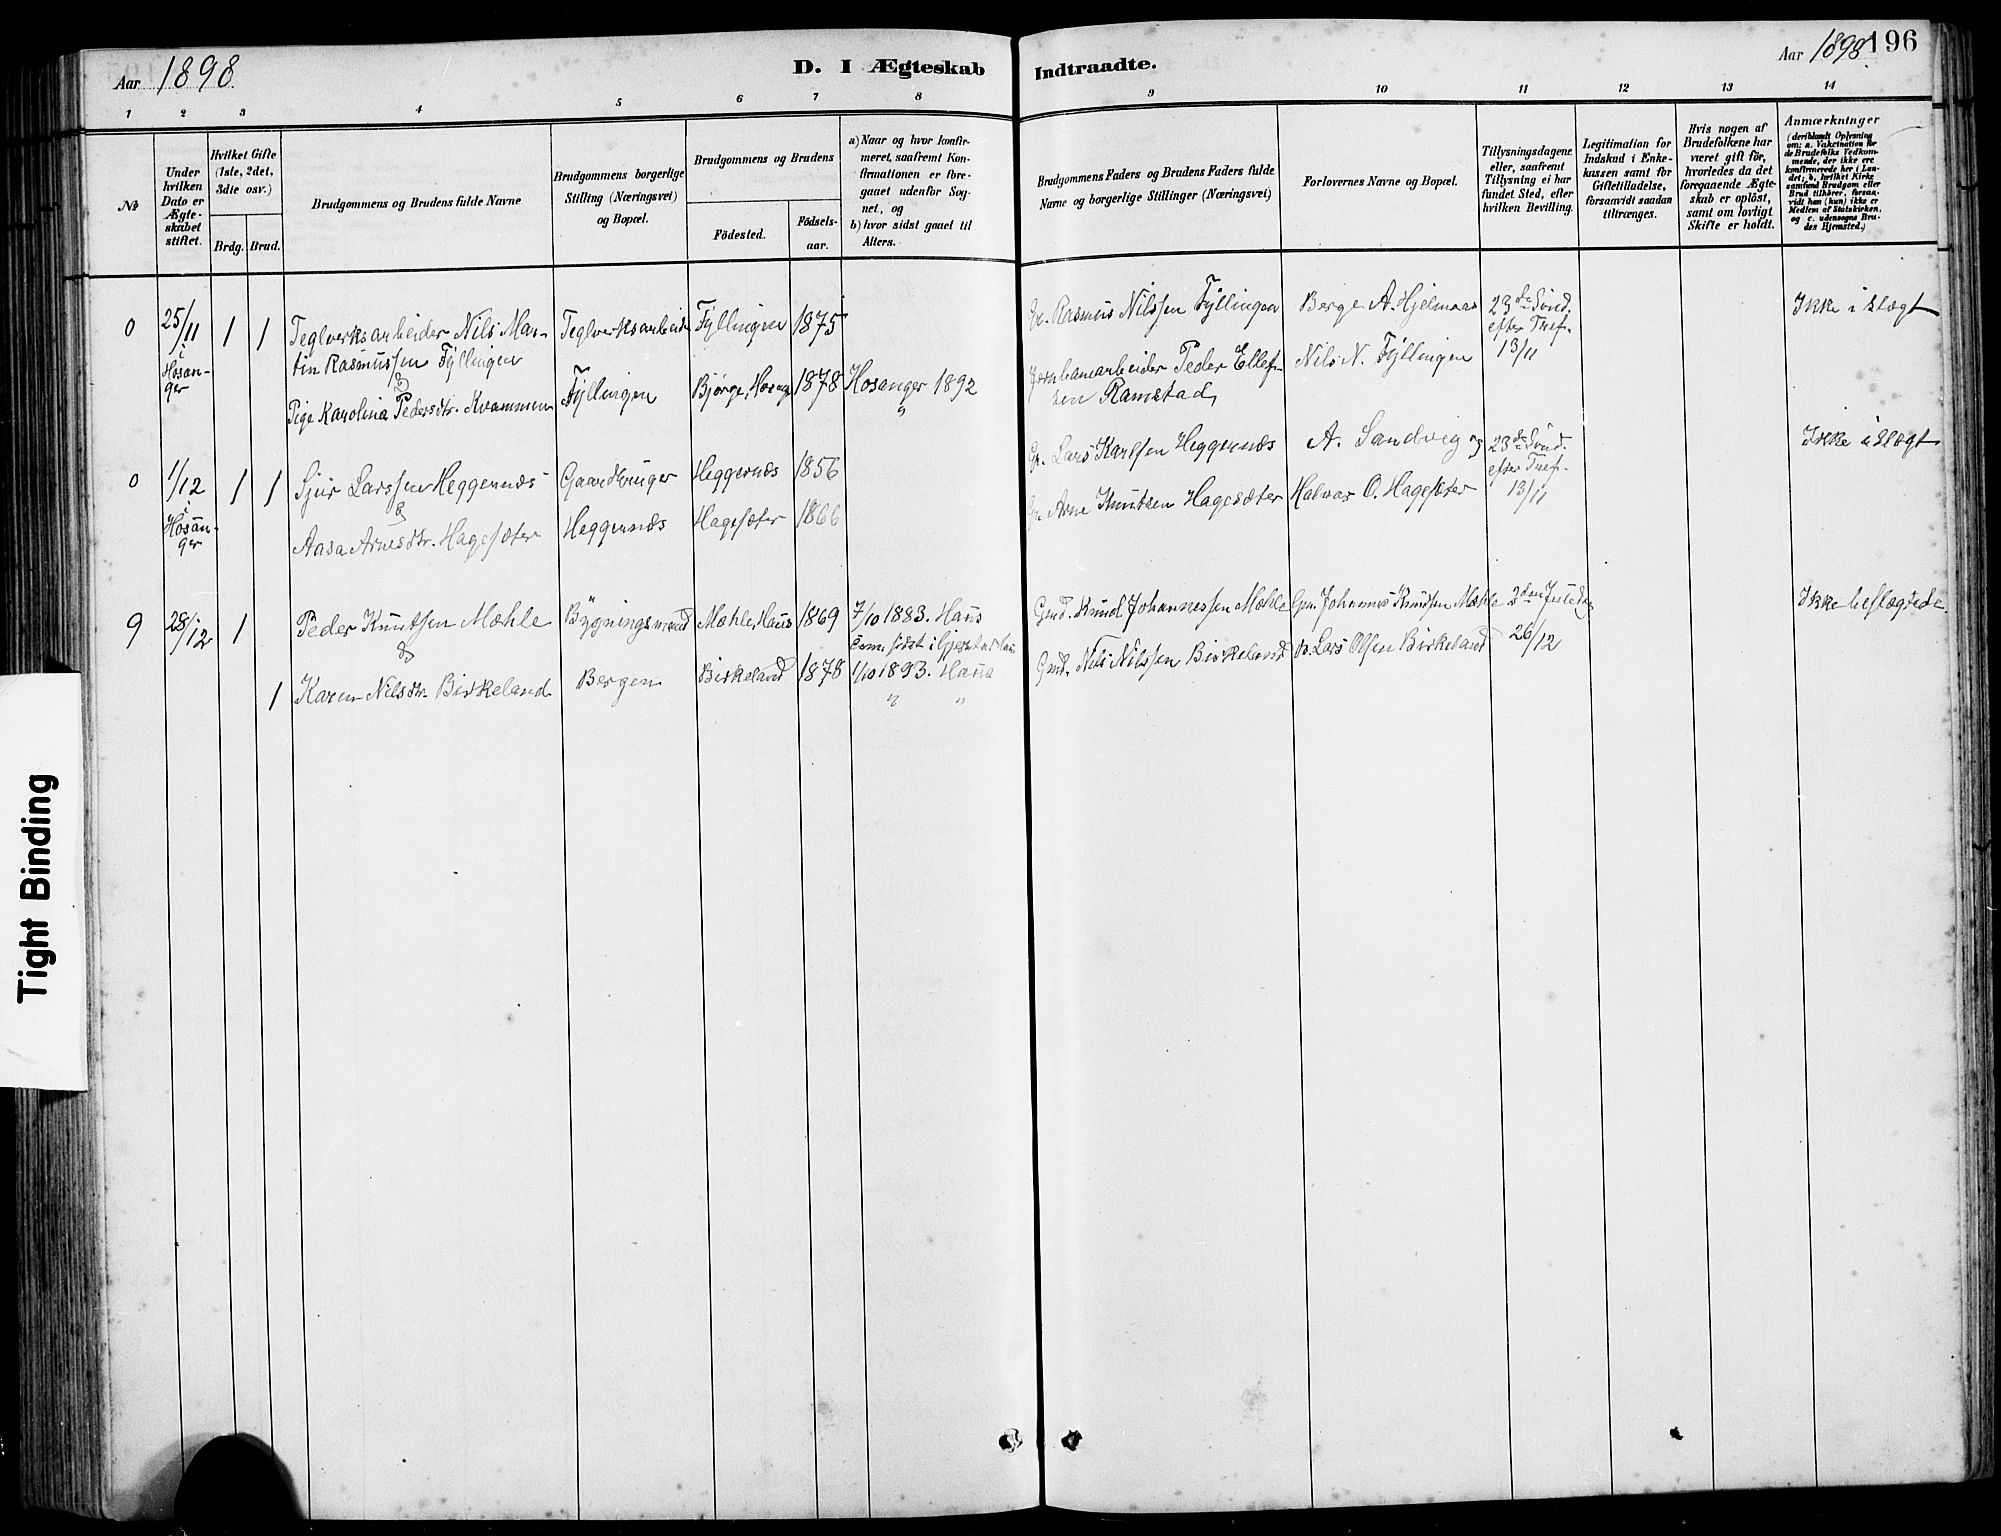 Aar 1898
D. I Ægteskab
Indtraadte.
Aar 1898.
196
1
2
3
4
5
6
7
8
9
10
11
12
13
14
№
Under
hvilken
Dato er
Ægte-
skabet
stiftet.
Hvilket Gifte
(1ste, 2det,
3die osv.)
Brdg.
Brud.
Brudgommens og Brudens fulde Navne
Brudgommens borgerlige
Stilling (Næringsvei)
og Bopæl.
Brudgommens og Brudens
Födested.
Födsels-
aar.
a) Naar og hvor konfir-
meret, saafremt Kon-
firmationen er fore-
gaaet udenfor Sog-
net, og
b) hvor sidst gaaet til
Alters.
Brudgommens Faders og Brudens Faders fulde
Navne og borgerlige Stillinger (Næringsvei)
Forlovernes Navne og Bopæl.
Tillysningsdagene
eller, saafremt
Tillysning ei har
fundet Sted, efter
hvilken Bevilling.
Legitimation for
Indskud i Enke-
kassen samt for
Giftetilladelse,
forsaavidt saadan
tiltrænges.
Hvis nogen af
Brudefolkene har
været gift för,
hvorledes da det
foregaaende Ægte-
skab er oplöst,
samt om lovligt
Skifte er holdt.
Anmærkninger
(deriblandt Oplysning
om: a. Vakcination for
de Brudefolks Vedkom-
mende, der ikke ere
konfirmerede her i Lan-
det; b. hvilket Kirke
samfund Brudgom eller
Brud tilhörer, forsaa-
vidt han (hun) ikke er
Medlem af Statskirken,
og c. udensogns Bru-
des Hjemsted.)
0
25/11
i
Hosan-
ger
1
1
Teglverksarbeider Nils Mar-
tin Rasmussen Fyllingen
&
Pige Karolina Pedersdtr. Kvammen
Teglverksarbeid
Fyllingen
Fyllingen
Bjørge, Hosag
1875
1878
Hosanger 1892
"
Gr. Rasmus Nilssen Fyllingen
Jernbanarbeider Peder Ellef-
sen Ramstad,
Berge A. Hjelmaas
Nils N. Fyllingen
23de Sönd.
efter Tref.
13/11
Ikke i slægt
0
1/12
i
Hosan-
ger
1
1
Sjur Larssen Heggernæs
&
Aasa Arnesdtr. Hagesæter
Gaardbruger
Heggernæs
Heggernæs
Hagesæter
1856
1866
Gr. Lars Karlsen Heggernæs
Gr. Arne Knutsen Hagesæter
A. Sandvig og
Halvor O. Hagesæter
23de Sönd.
efter Tref.
13/11
Ikke i slægt
9
28/12
1
1
Peder Knutsen Mæhle
&
Karen Nilsdtr. Birkeland
Bygningsmand
Bergen
Mæhle, Haus
Birkeland
1869
1878
7/10 1883. Haus
1/10 1893. Haus
" "
Gmd. Knud Johannessen Mæhle
Gmd. Nils Nilssen Birkeland
Gm. Johannes Knudsen Mæhle
Lars Olsen Birkeland
2den Juledag
26/12
Ikke beslægtede.
Tight Binding